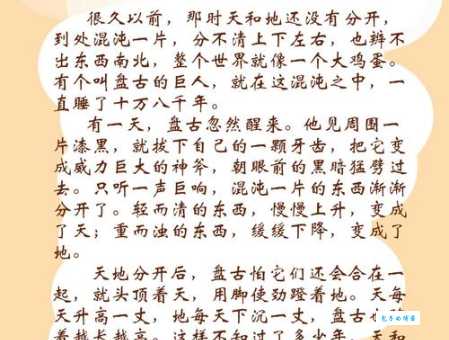 很久以前，那时天和地还没有分开，
到处混沌一片，分不清上下左右，也辨不
出东西南北，整个世界就像一个大鸡蛋。
有个叫盘古的巨人，就在这混沌之中，一
直睡了十万八千年。
有一天，盘古忽然醒来。他见周围一
片漆黑，就拔下自己的一颗牙齿，把它变
成威力巨大的神斧，朝眼前的黑暗猛劈过
去。只听一声巨响，混沌一片的东西渐渐
分开了。轻而清的东西，慢慢上升，变成
了天；重而浊的东西，缓缓下降，变成了
地。
天地分开后，盘古怕它们还会合在一
起，就头顶着天，用脚使劲蹬着地。天每
天升高一丈，地每天下沉一丈，盘古也
着越长越高。这样不知过了多少年，天和